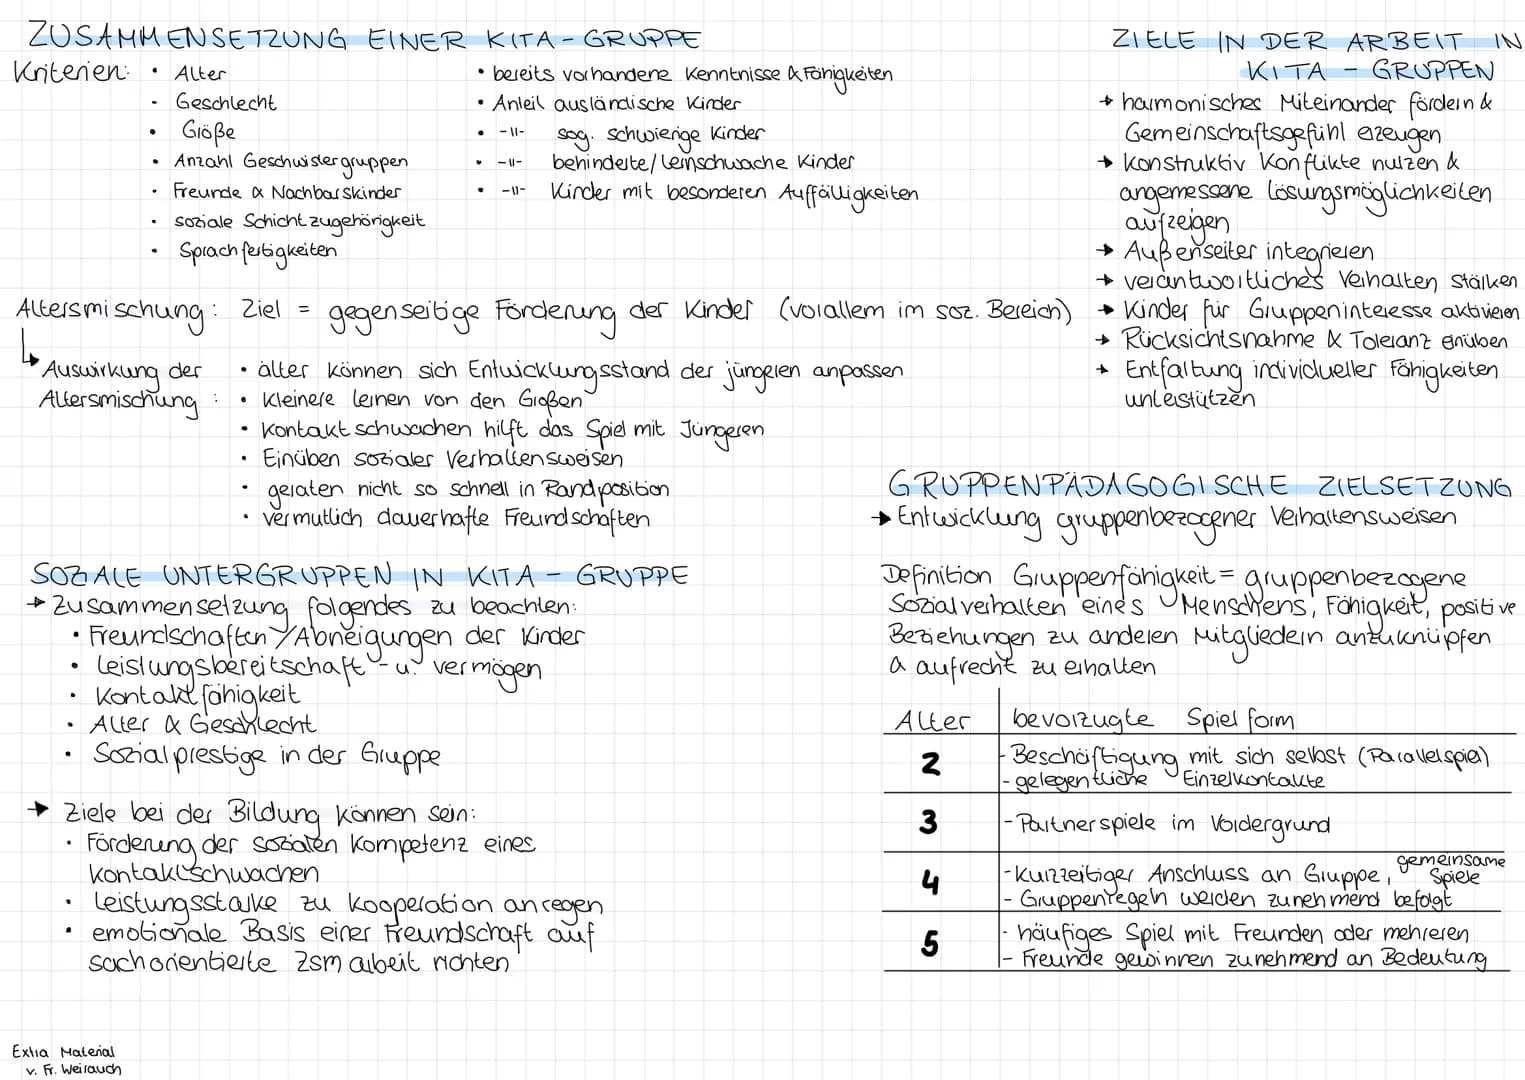 ZUSAMMENSETZUNG EINER KITA-GRUPPE
Kriterien:
• Alter
• Geschlecht
• Größe
• Anzahl Geschwistergruppen
• Freunde & Nachbarskinder
• soziale Schichtzugehörigkeit
• Sprachfertigkeiten
• bereits vorhandene Kenntnisse & Fähigkeiten
• Anteil ausländische Kinder
• -11- sog. schwierige Kinder
• -11- behinderte/lernschwache Kinder
• -11- Kinder mit besonderen Auffälligkeiten
Altersmischung: Ziel = gegenseitige Förderung der Kinder (vorallem im soz. Bereich)
↳ Auswirkung der
Altersmischung:
• älter können sich Entwicklungsstand der jüngeren anpassen
• Kleinere lernen von den Großen
• Kontaktschwachen hilft das Spiel mit Jüngeren
• Einüben sozialer Verhaltensweisen
• geraten nicht so schnell in Randposition
• vermutlich dauerhafte Freundschaften
SOZIALE UNTERGRUPPEN IN KITA-GRUPPE
→ Zusammensetzung folgendes zu beachten:
• Freundschaften / Abneigungen der Kinder
• Leistungsbereitschaft - u. vermögen
• Kontaktfähigkeit
• Alter & Geschlecht
• Sozialprestige in der Gruppe
→ Ziele bei der Bildung können sein:
• Förderung der sozialen Kompetenz eines
kontaktschwachen
• leistungsstarke zu Kooperation anregen
• emotionale Basis einer Freundschaft auf
sachorientierte Zsm arbeit richten
Extra Material
v. Fr. Weirauch
ZIELE IN DER ARBEIT IN
KITA - GRUPPEN
→ harmonisches Miteinander fördern &
Gemeinschaftsgefühl erzeugen
→ konstruktiv Konflikte nutzen &
angemessene Lösungsmöglichkeiten
aufzeigen
→ Außenseiter integrieren
→ verantwortliches Verhalten stärken
→ Kinder für Gruppeninteresse aktivieren
→ Rücksichtsnahme & Toleranz einüben
→ Entfaltung individueller Fähigkeiten
unterstützen
GRUPPENPÄDAGOGISCHE ZIELSETZUNG
→ Entwicklung gruppenbezogener Verhaltensweisen
Definition Gruppenfähigkeit = gruppenbezogene
Sozialverhalten eines Menschens, Fähigkeit, positive
Beziehungen zu anderen Mitgliedern anzuknüpfen
& aufrecht zu erhalten
Alter bevorzugte Spielform
2 - Beschäftigung mit sich selbst (Parallelspiel)
- gelegentliche Einzelkontakte
3 - Partnerspiele im Vordergrund
4 - Kurzzeitiger Anschluss an Gruppe, gemeinsame Spiele
- Gruppenregeln werden zunehmend befolgt
5 - häufiges Spiel mit Freunden oder mehreren
- Freunde gewinnen zunehmend an Bedeutung